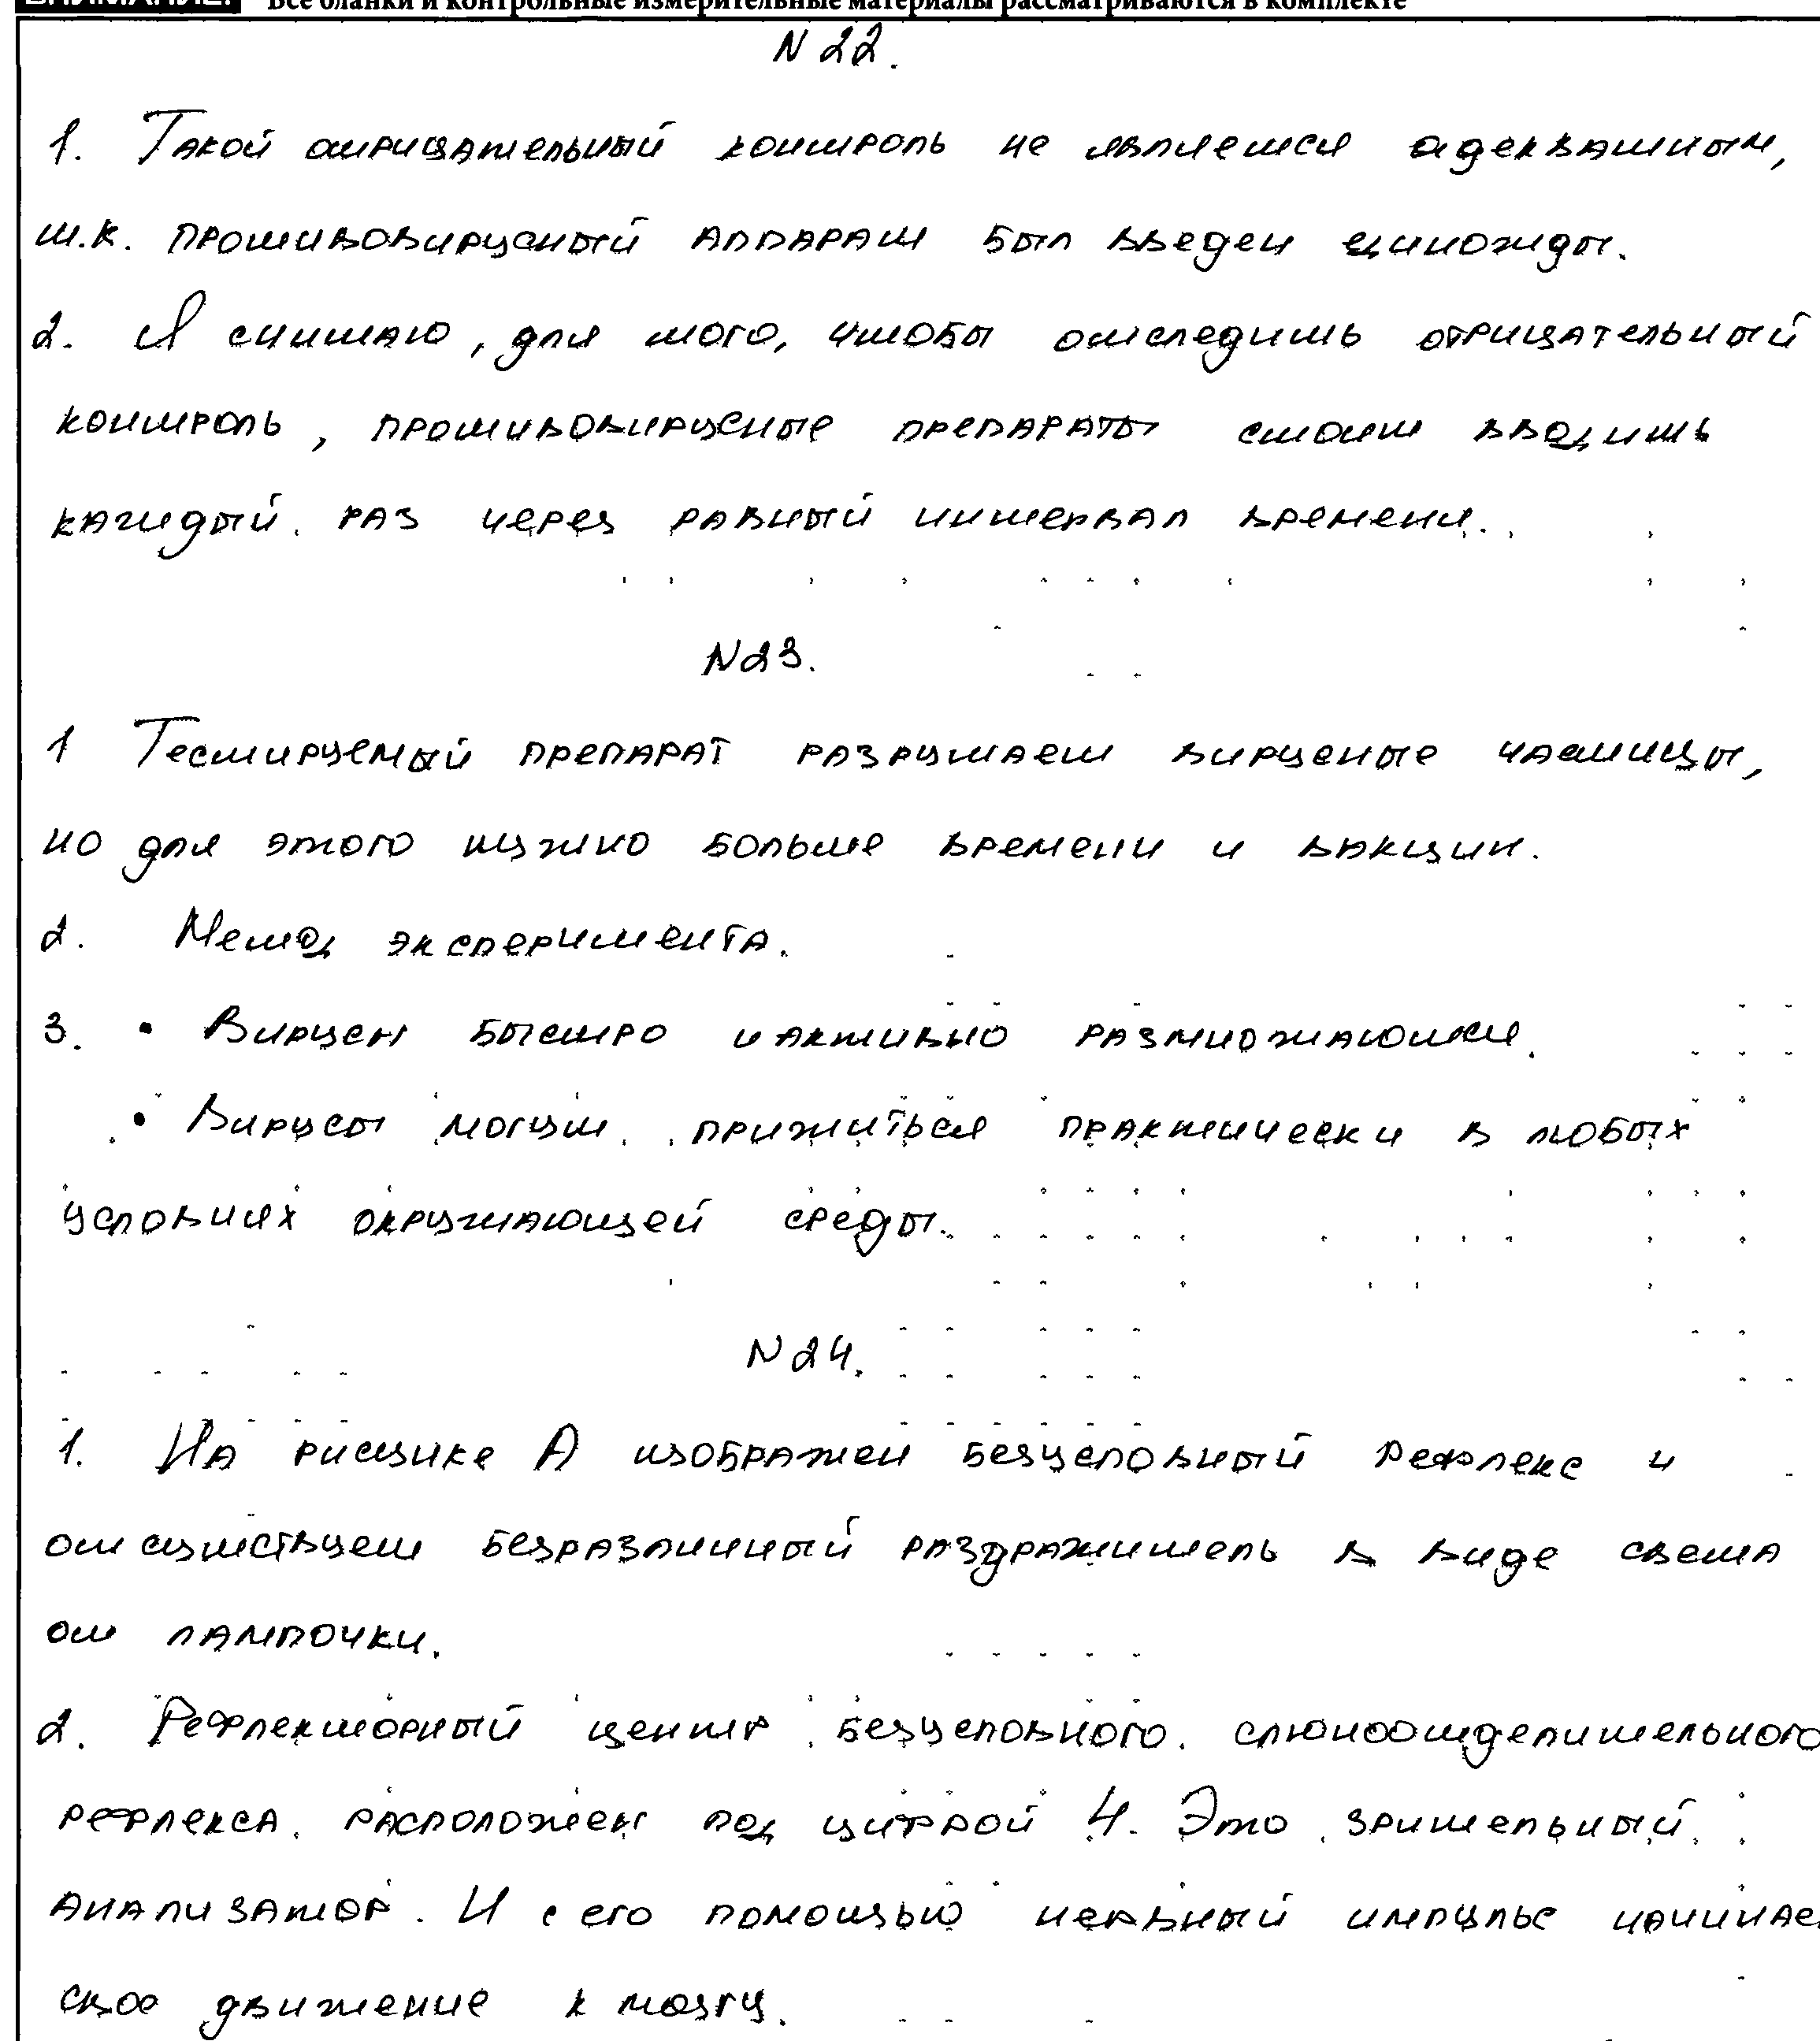 Все бланки и контрольные измерительные материалы рассматриваются в комплекте
N 22.
1. Такой отрицательный контроль не является адекватным,
т.к. противовирусный аппарат был введен единожды.
2. Я считаю, для того, чтобы отследить отрицательный
контроль, противовирусные препараты стоит вводить
каждый раз через равный интервал времени.
N23.
1 Тестируемый препарат разрушает вирусные частицы,
но для этого нужно больше времени и вакцин.
2. Метод эксперимента.
3. • Вирусы быстро и активно размножаются.
• Вирусы могут прижиться практически в любых
условиях окружающей среды.
N24.
1. На рисунке А изображен безусловный рефлекс и
отсутствует безразличный раздражитель в виде света
от лампочки.
2. Рефлекторный центр безусловного слюноотделительного
рефлекса расположен под цифрой 4. Это зрительный
анализатор. И с его помощью нервный импульс начинае
свое движение к мозгу.